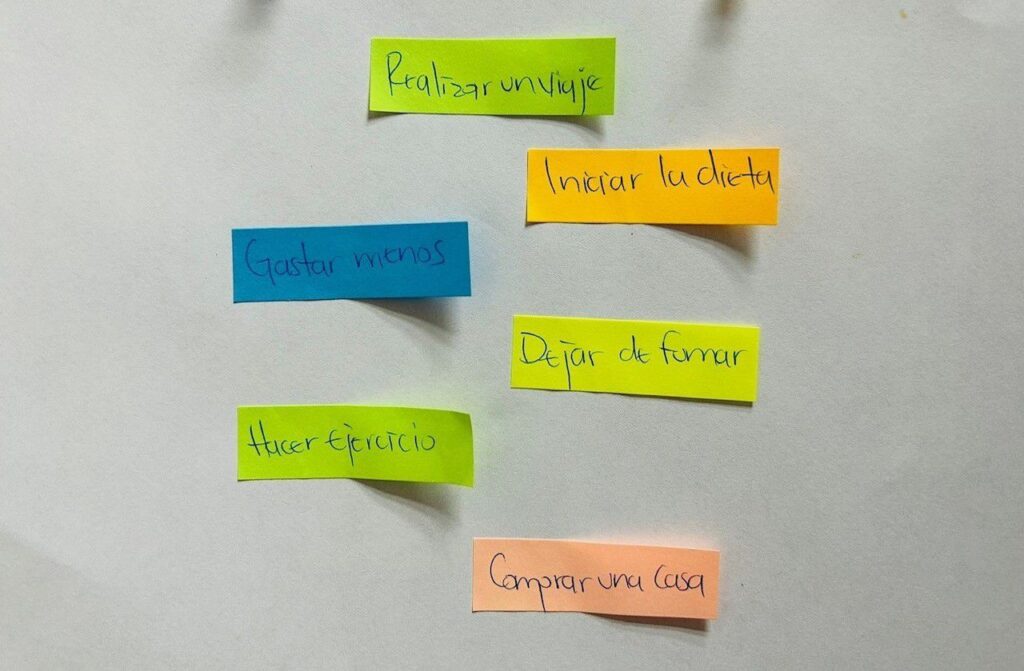 Realizar un viaje
Iniciar la dieta
Gastar menos
Dejar de fumar
Hacer ejercicio
Comprar una casa